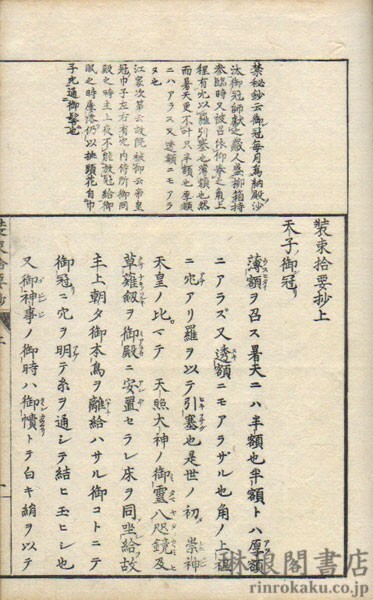 禁秘鈔云御冠毎月為納殿沙
汰御冠師献之蔵人盛柳箱持
参臨時又被召依仰奉之角上
裡有穴以羅引塞也薄額也然
而暑天更不叶只半額也厚額
ニハアラス又透額ニモアラ
ヌ也
江家次第云故院被仰云帝皇
冠巾子左右有穴内侍所御同
殿之時主上夜不能放冠給御
眠之時
子穴通御髻也
装束拾要抄上
天子御冠
薄額ヲ召ス暑天ニハ半額也半額トハ厚額
ニアラズ又透額ニモアラザル也角ノ上裡
ニ穴アリ羅ヲ以テ引塞也是世ノ初崇神
天皇ノ比マテ天照大神ノ御霊八咫鏡及
草薙劔ヲ御殿ニ安置セラレ床ヲ同坐給故
主上朝夕御本鳥ヲ離給ハサル御コトニテ
御冠ニ穴ヲ明テ糸ヲ通シテ結ヒ玉ヒシ也
又御神事ノ御時ハ御幘トテ白キ絹ヲ以テ
装束拾要抄上
琳琅閣書店
rinrokaku.co.jp